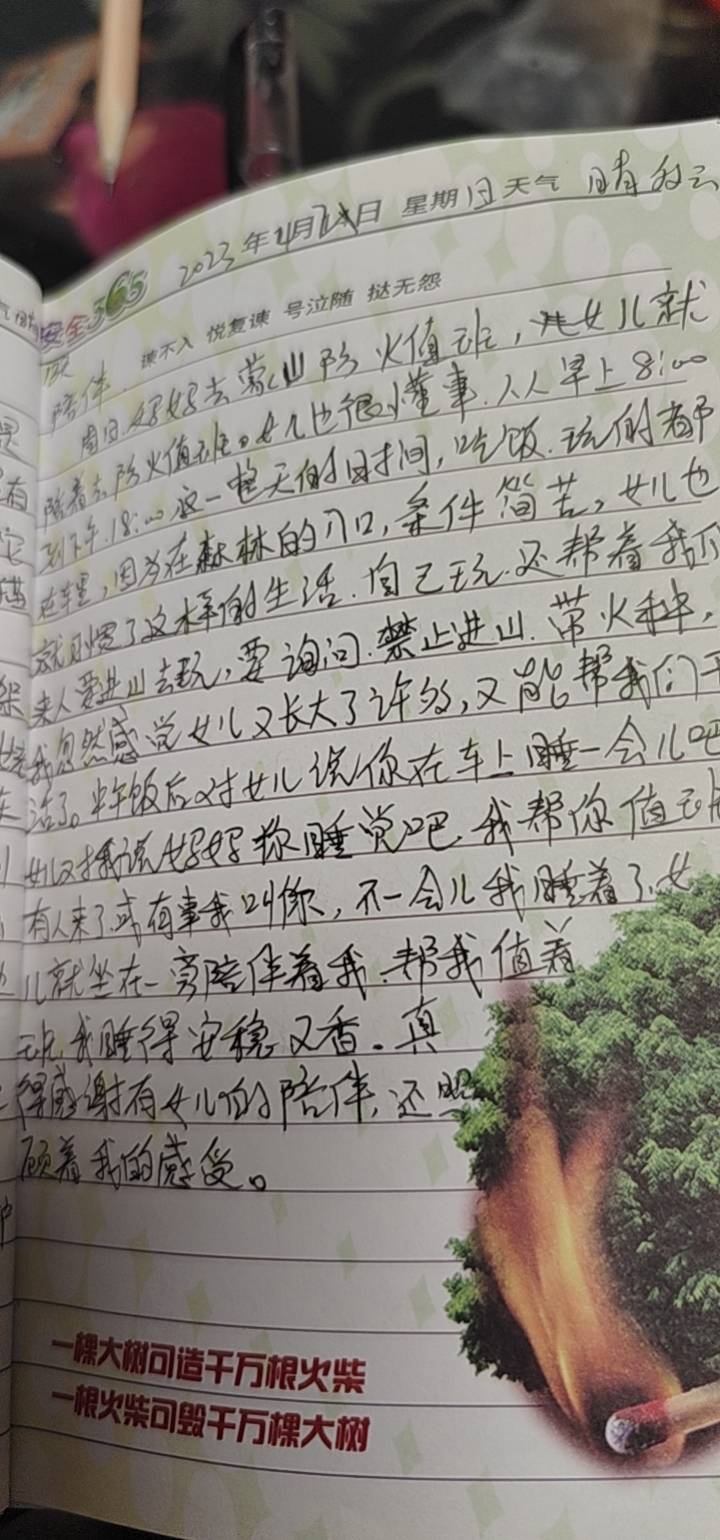 安全365 2023年4月 日 星期日 天气 晴 多云
谏不入 悦复谏 号泣随 挞无怨
陪伴.
周日.妈妈去蒙山防火值班,女儿就
随着去防火值班。女儿也很懂事.从早上8:00
到下午.18:00这一整天的时间,吃饭.玩的都
在车里,因为在森林的入口,条件简苦,女儿也
就习惯了这样的生活.自己玩.还帮着我们
来人要进山去玩,要询问.禁止进山.带火种,
我忽然感觉女儿又长大了许多,又能帮我们干
活了。中午饭后对女儿说你在车上睡一会儿吧
女儿对我说妈妈你睡觉吧.我帮你值班
有人来了或有事我叫你,不一会儿我睡着了.女
儿就坐在一旁陪伴着我.帮我值着
班.我睡得安稳又香.真
得感谢有女儿的陪伴,还照
顾着我的感受。
一棵大树可造千万根火柴
一根火柴可毁千万棵大树